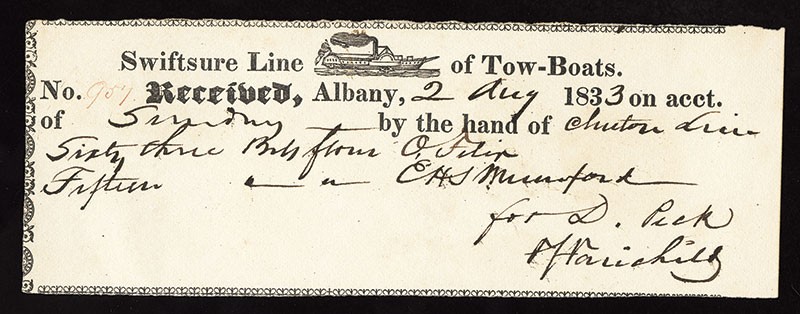 Swiftsure Line of Tow-Boats.
No. 957 Received, Albany, 2 Aug 1833 on acct.
of Sundry by the hand of Clinton Line
Sixty three Bbls flour O. Felix
Fifteen " " EHS Mumford
for D. Peck
Fairchild